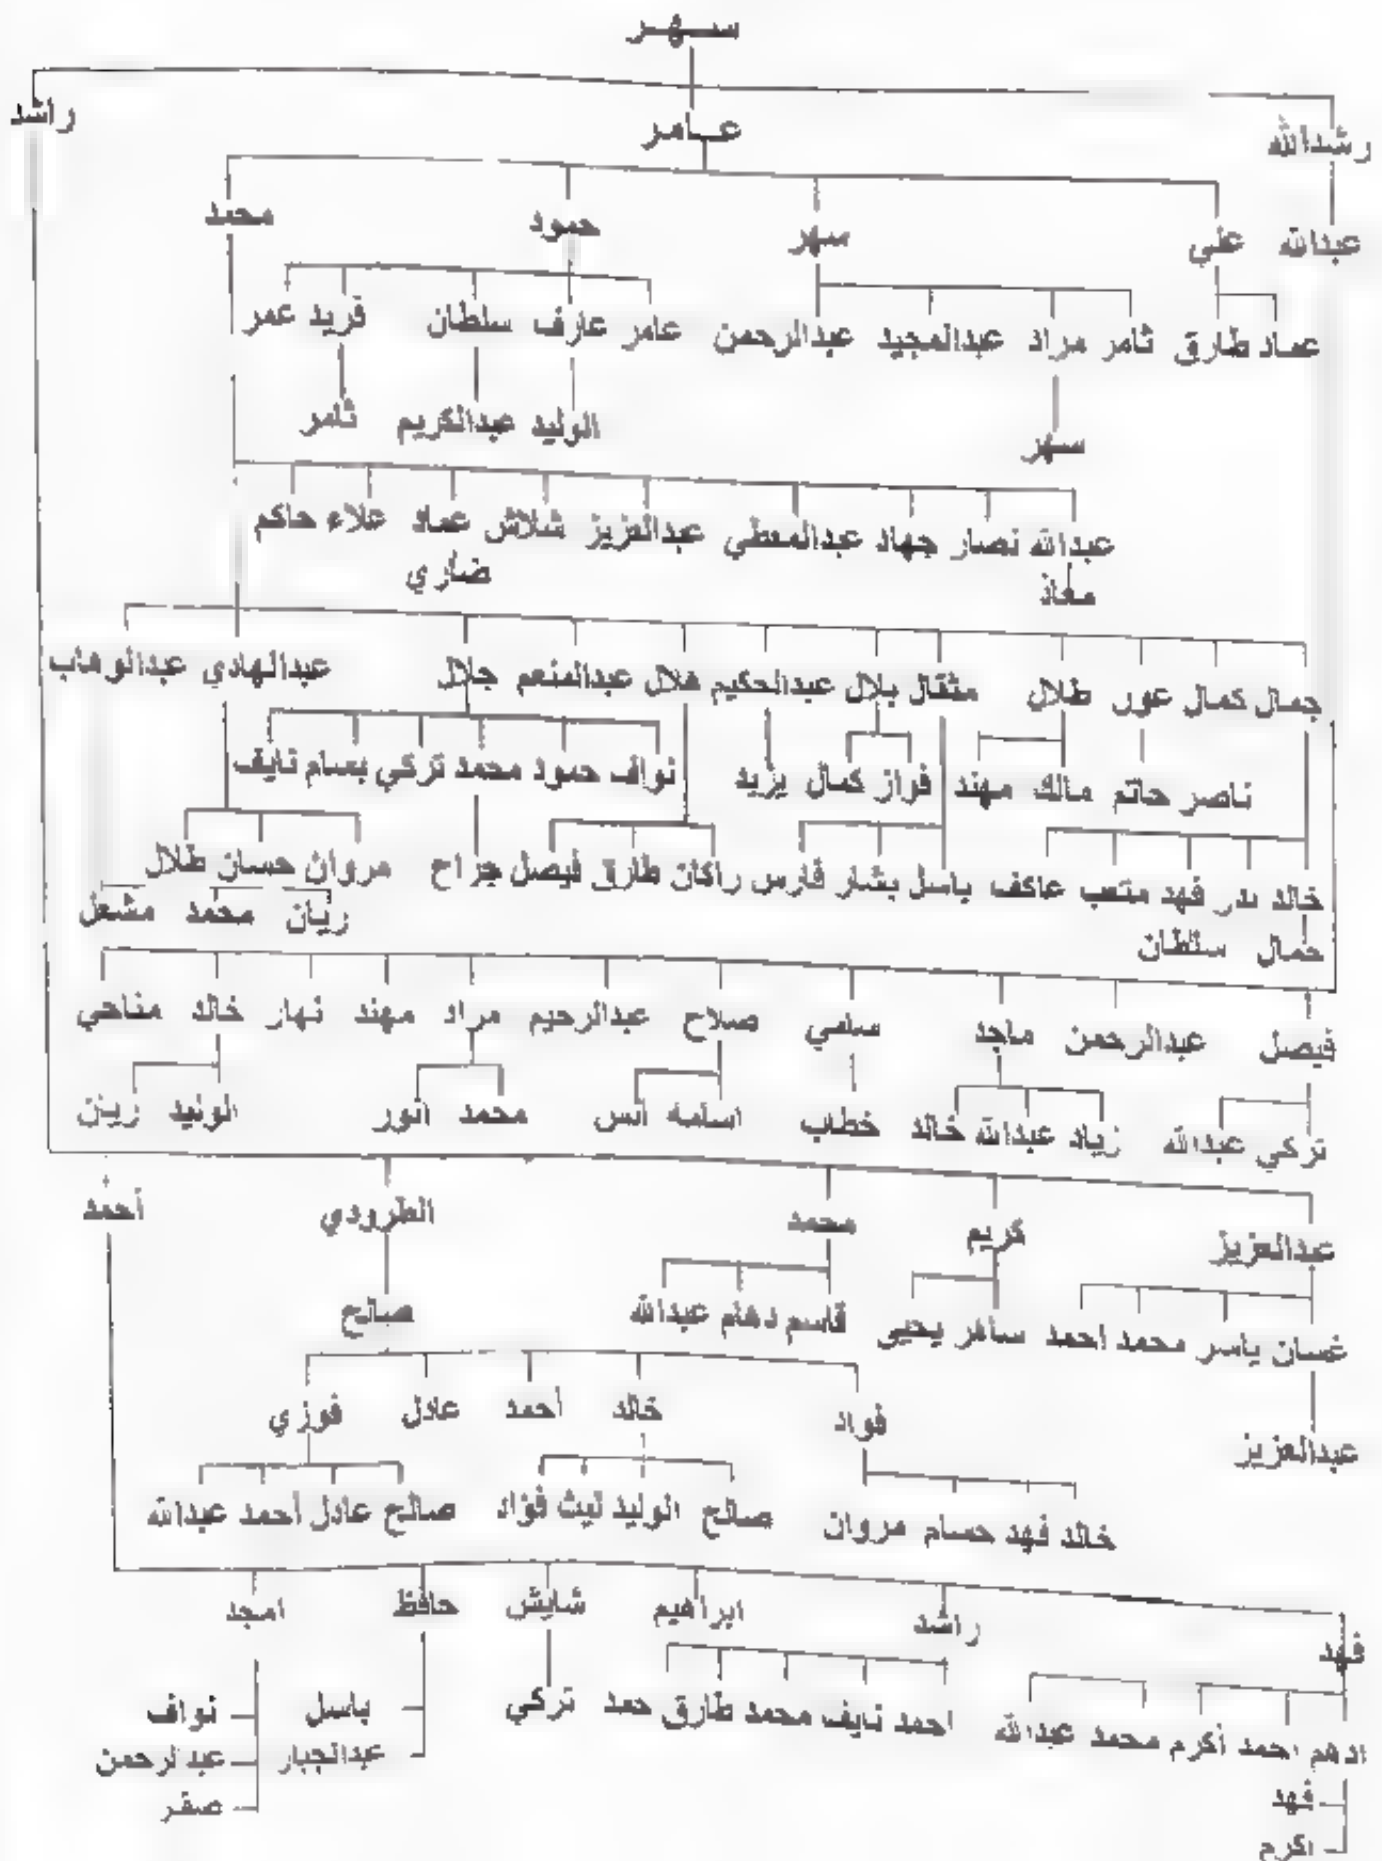 سهر
رشدالله عامر راشد
عبدالله علي سهر حمود محمد
عماد طارق ثامر مراد عبدالمجيد عبدالرحمن عامر عارف سلطان فريد عمر
سهر الوليد عبدالكريم ثامر
عبدالله نصار جهاد عبدالمعطي عبدالعزيز شلاش عماد علاء حاكم
معاذ ضاري
جمال كمال عون طلال مثقال بلال عبدالحكيم هلال عبدالمنعم جلال عبدالهادي عبدالوهاب
ناصر حاتم مالك مهند فواز كمال يزيد نواف حمود محمد تركي بسام نايف
خالد بدر فهد متعب عاكف باسل بشار فارس راكان طارق فيصل جراح مروان حسان طلال
جمال سلطان ريان محمد مشعل
فيصل عبدالرحمن ماجد سامي صلاح عبدالرحيم مراد مهند نهار خالد مناحي
تركي عبدالله زياد عبدالله خالد خطاب اسامه انس محمد انور الوليد ريان
عبدالعزيز كريم محمد الطرودي أحمد
غسان ياسر محمد احمد سافر يحيى قاسم دهام عبدالله صالح
فواد خالد أحمد عادل فوزي
عبدالعزيز
خالد فهد حسام مروان صالح الوليد ليث فؤاد صالح عادل أحمد عبدالله
فهد راشد ابراهيم شايش حافظ امجد
ادهم احمد أكرم محمد عبدالله احمد نايف محمد طارق حمد تركي باسل نواف
عبدالجبار عبدالرحمن
فهد صقر
اكرم